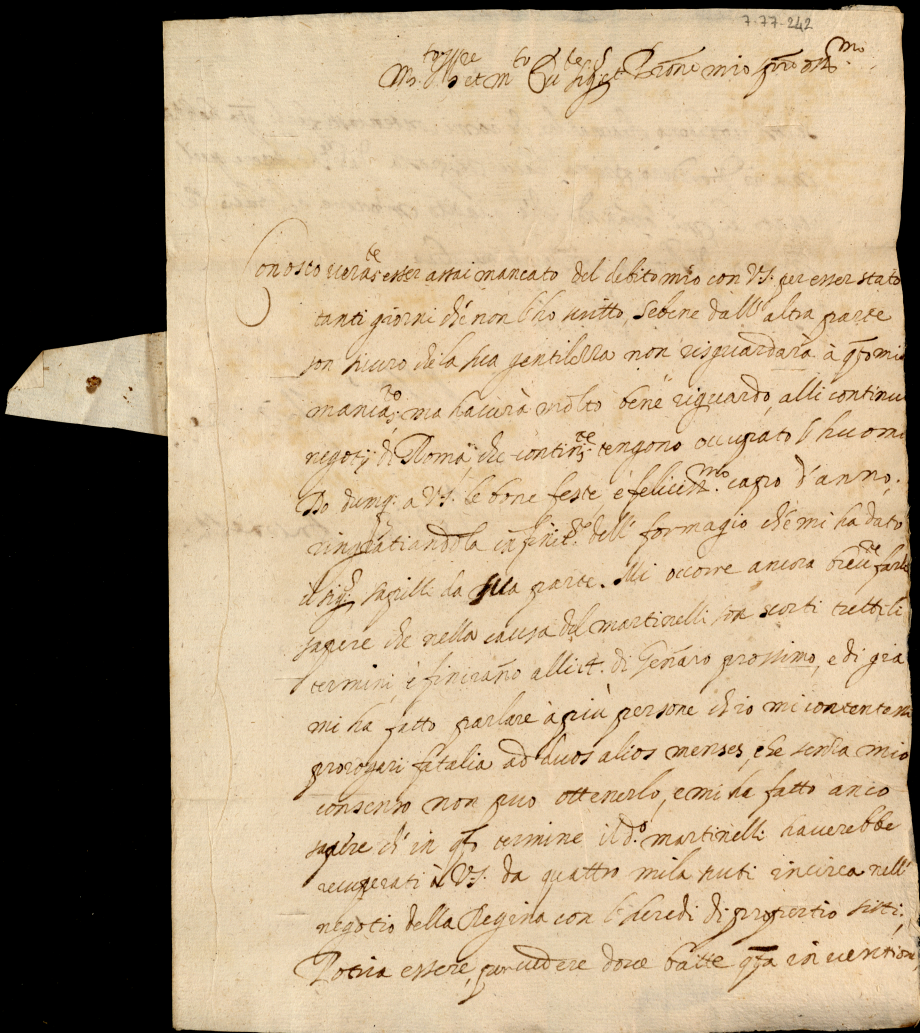 7-77-242
Conosco verate esser assai mancato del debito mio con V.S. per esser stato
tanti giorni ché non l'ho scritto, sebene dall'altra parte
son sicuro che la sua gentilezza non risguardarà à qsto mio
mancato, ma haverà molto bene riguardo, alli continui
negotij di Roma, che continte tengono occupato l'huomo
Do dunq. a V.S. le bone feste, é felicissmo capo d'anno,
ringratiandola infinite. dell' formagio ché mi ha dato
il sigr da sua parte. Mi occorre ancora brevte farle
sapere che nella causa del martinelli son scorsi tutti li
termini é finirano alli di Genaro prossimo, e di gia
mi ha fatto parlare à più persone ch'io mi contentassi
prorogari fatalia ad duos alios menses, che senza mio
consenso non puo ottenerlo, e mi ha fatto anco
sapere ch' in qsto termine il do. martinelli haverebbe
recuperati à V.S. da quattro mila scuti incirca nell'
negotio della Regina con l'heredi di propertio
Potria essere, per vedere dove batte qsta inventione,